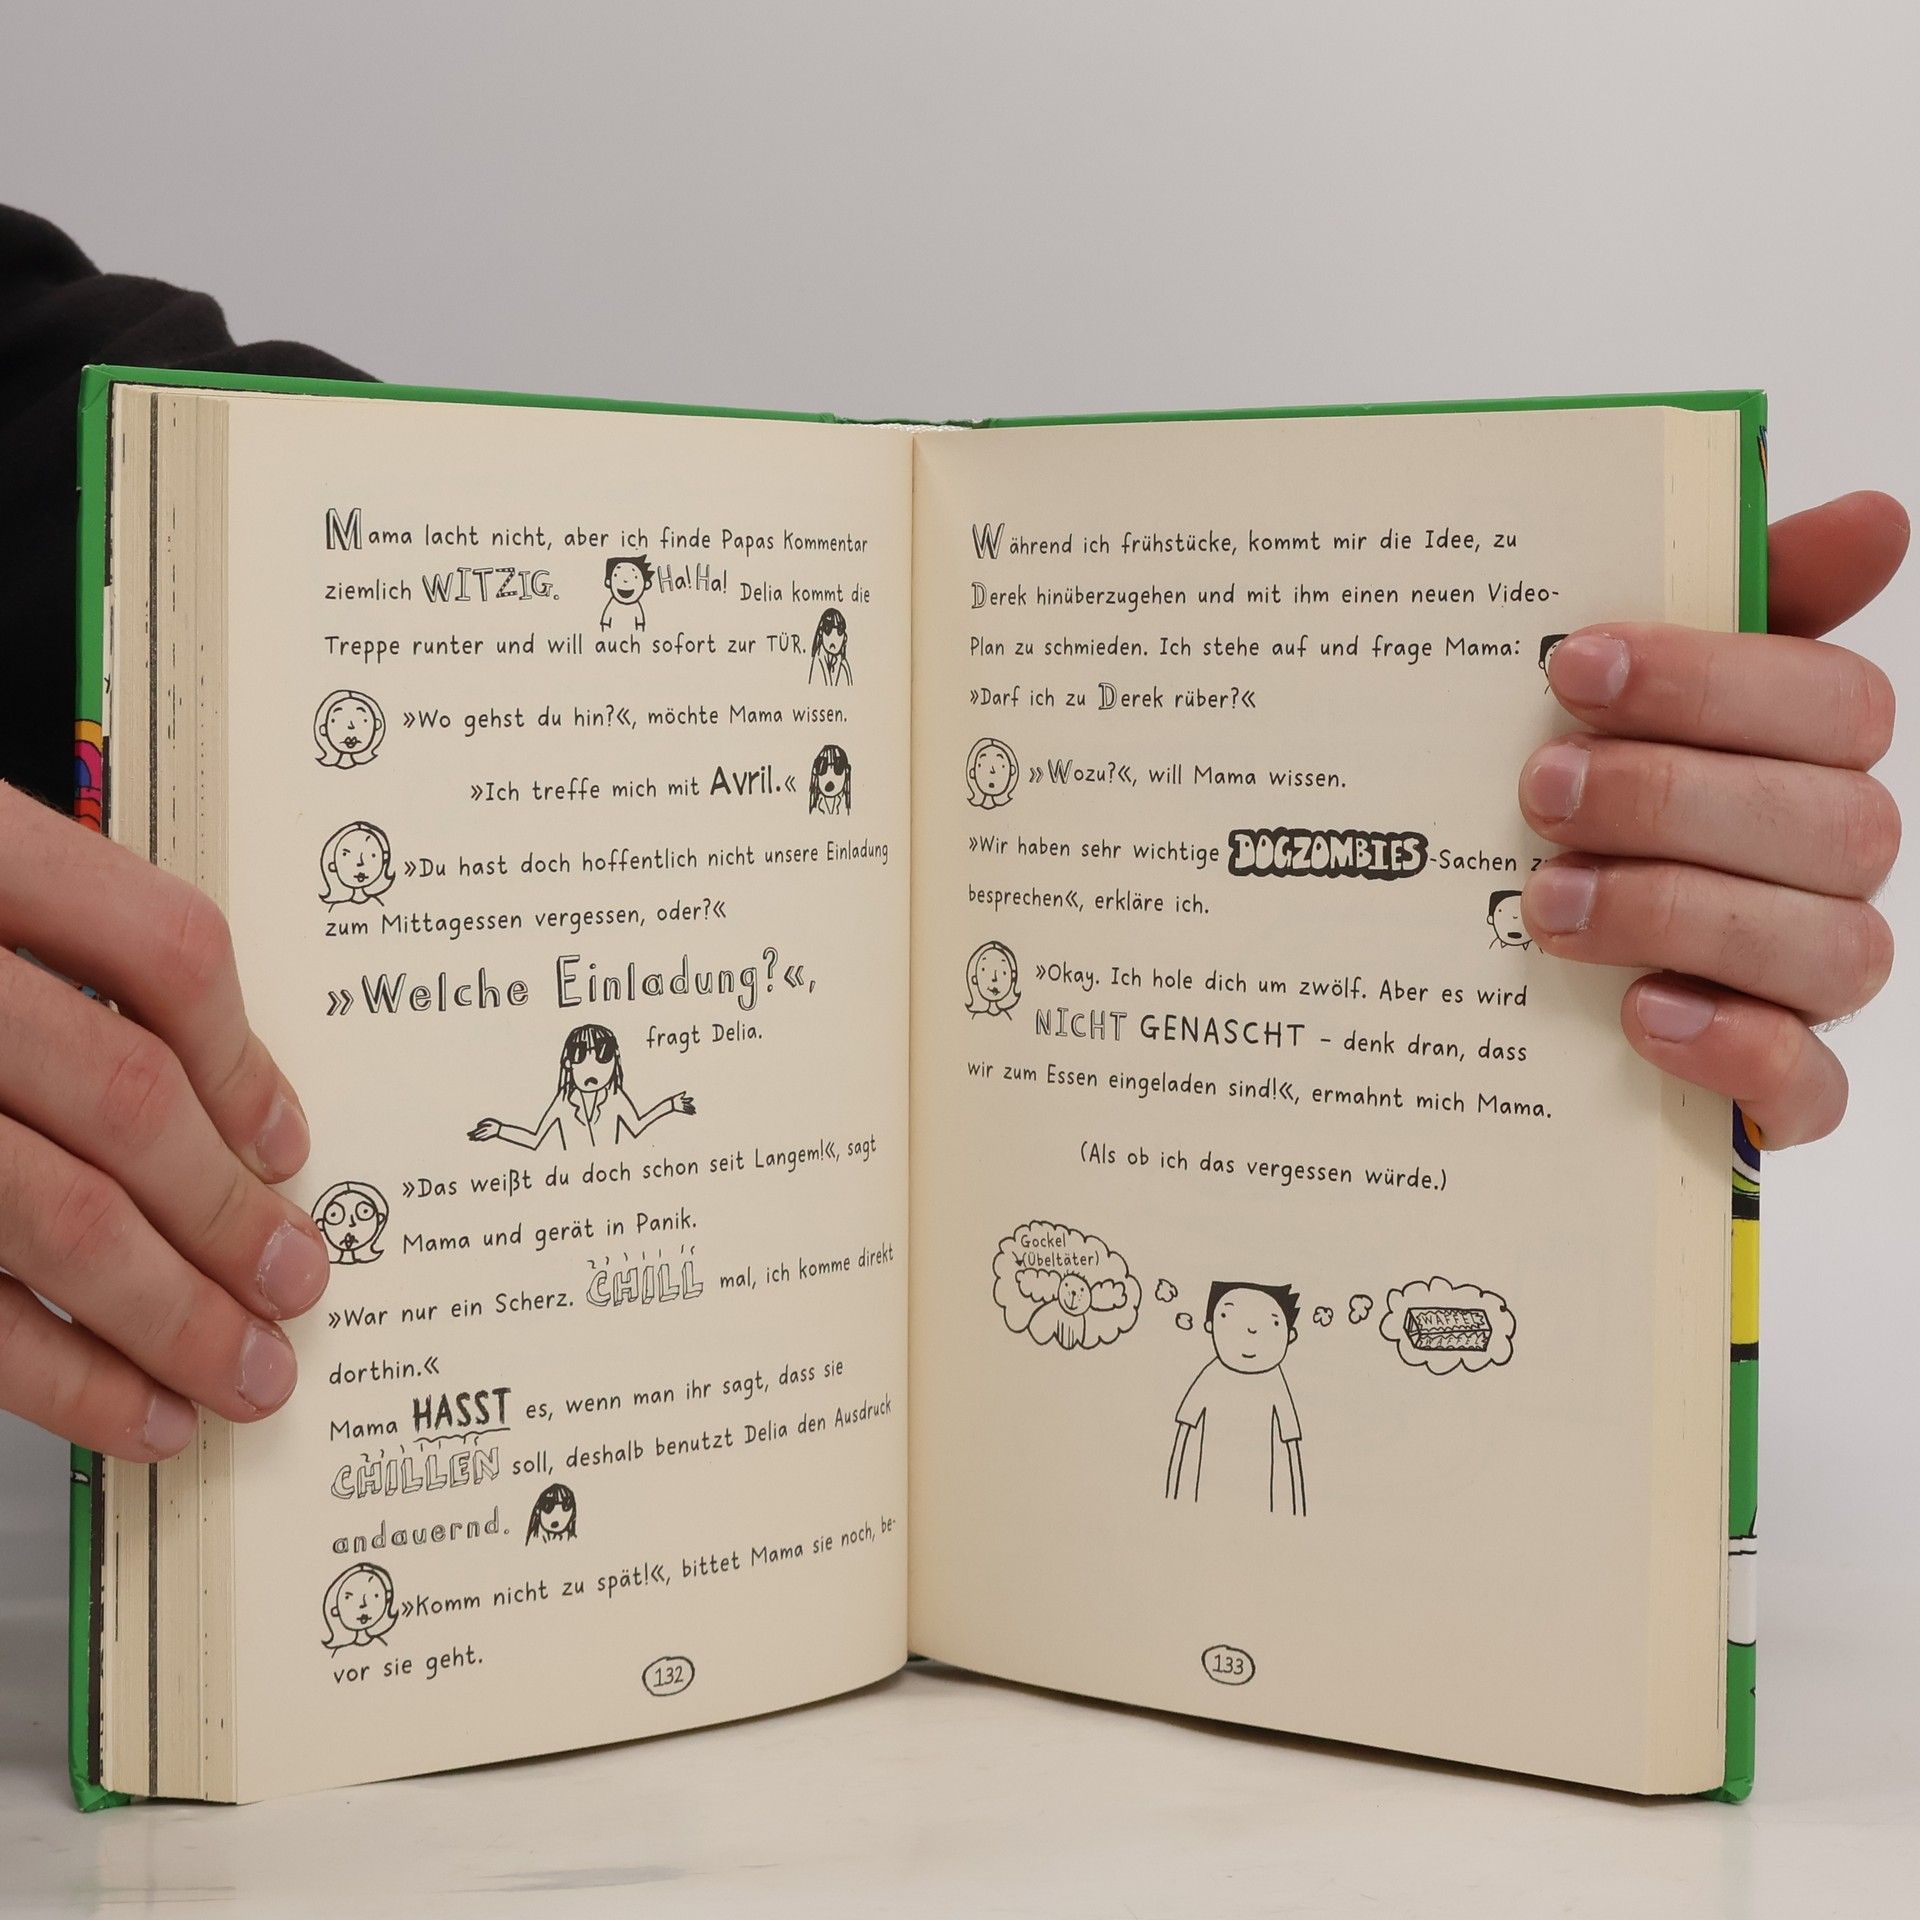 Mama lacht nicht, aber ich finde Papas Kommentar
ziemlich WITZIG. Ha! Ha! Delia kommt die
Treppe runter und will auch sofort zur TÜR.
»Wo gehst du hin?«, möchte Mama wissen.
»Ich treffe mich mit Avril.«
»Du hast doch hoffentlich nicht unsere Einladung
zum Mittagessen vergessen, oder?«
»Welche Einladung?«,
fragt Delia.
»Das weißt du doch schon seit Langem!«, sagt
Mama und gerät in Panik.
»War nur ein Scherz. CHILL mal, ich komme direkt
dorthin.«
Mama HASST es, wenn man ihr sagt, dass sie
CHILLEN soll, deshalb benutzt Delia den Ausdruck
andauernd.
»Komm nicht zu spät!«, bittet Mama sie noch, be-
vor sie geht.
132
Während ich frühstücke, kommt mir die Idee, zu
Derek hinüberzugehen und mit ihm einen neuen Video-
Plan zu schmieden. Ich stehe auf und frage Mama:
»Darf ich zu Derek rüber?«
»Wozu?«, will Mama wissen.
»Wir haben sehr wichtige DOGZOMBIES-Sachen
besprechen«, erkläre ich.
»Okay. Ich hole dich um zwölf. Aber es wird
NICHT GENASCHT – denk dran, dass
wir zum Essen eingeladen sind!«, ermahnt mich Mama.
(Als ob ich das vergessen würde.)
Gockel
(Übeltäter)
WAFFEL
133